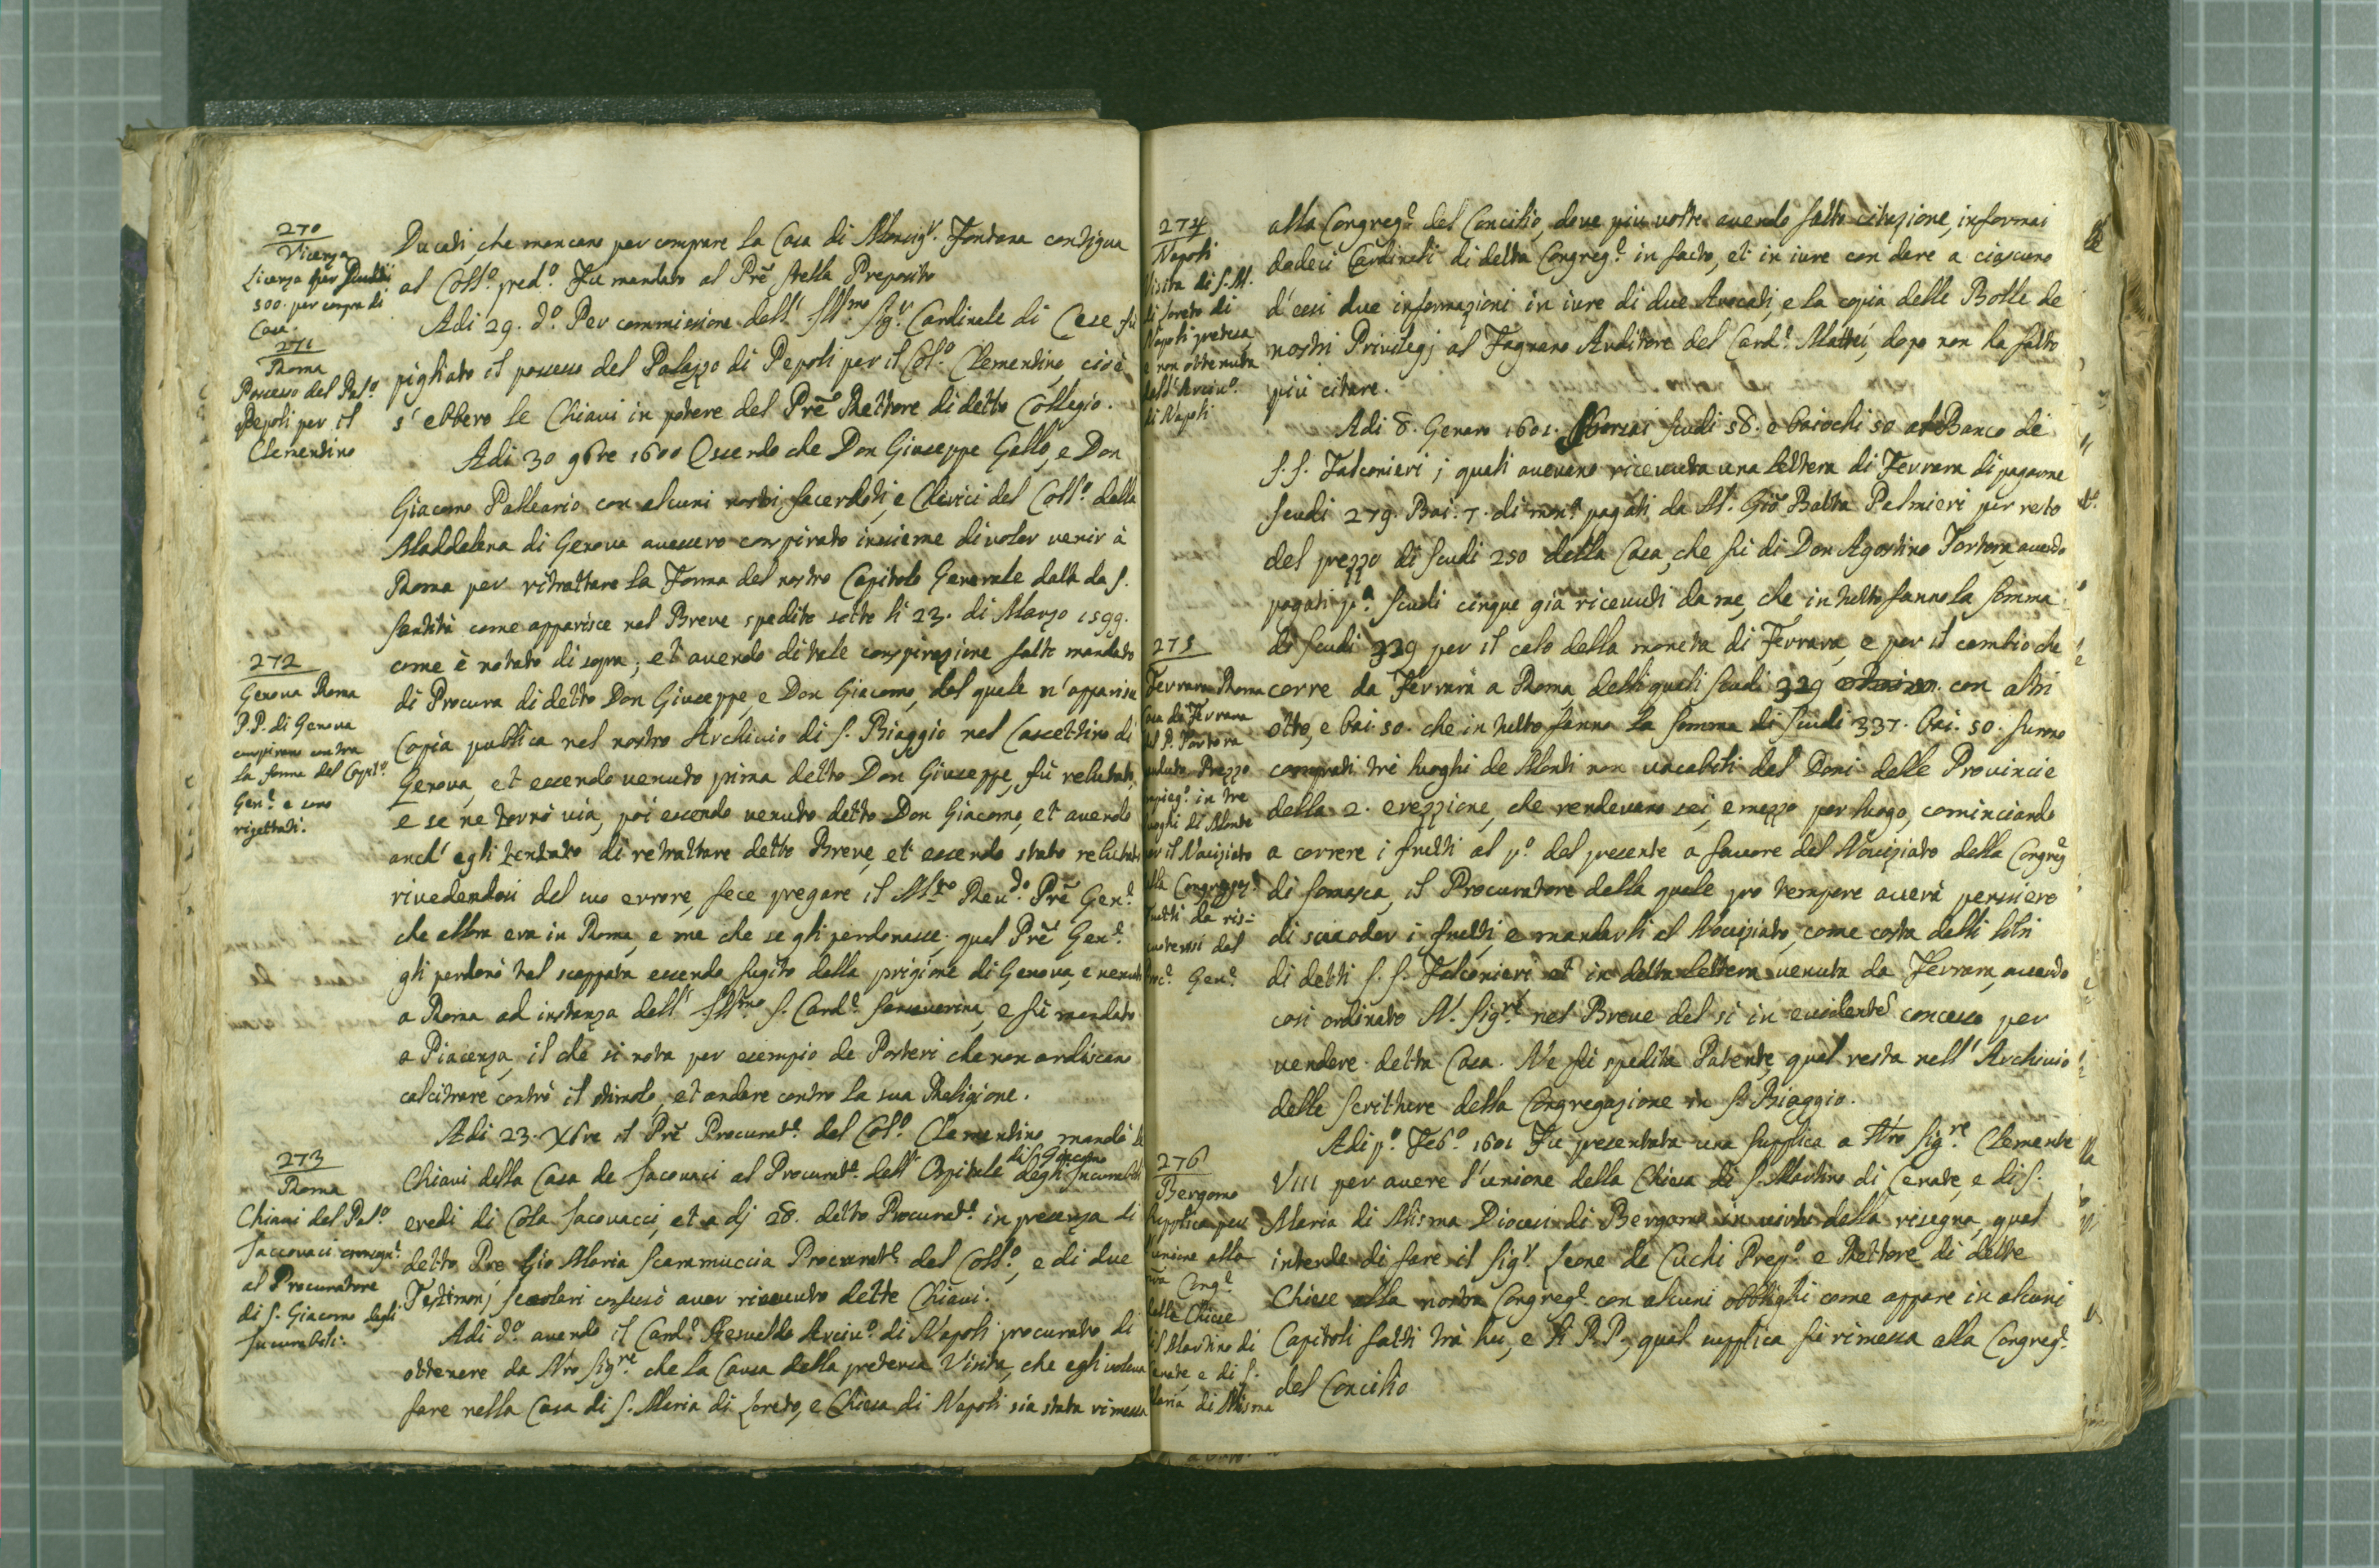 270
Vicenza
Licenza per Scudi
500. per compra di
Casa.
271
Roma
Possesso del Pal.o
Pepoli per il
Clementino
272
Genova Roma
P.P. di Genova
conspirano contra
la forma del Capit.o
Gen.e e sono
rigettati.
273
Roma
Chiavi del Pal.o
Jaccovaci consegn.e
al Procuratore
di S. Giacomo degli
Incurabili.
Ducati, che mancano per comprare la Casa di Monsig.r Fontana contigua
al Coll.o pred.o. Fu mandato al Prē Stella Preposito
Adi 29. d.o Per commissione dell' Ill.mo Sig.r Cardinale di Cese fù
pigliato il possesso del Palazzo di Pepoli per il Col.o Clementino, cioè
s' ebbero le Chiavi in potere del Prē Rettore di detto Collegio.
Adi 30 9bre 1600 Essendo che Don Giuseppe Gallo, e Don
Giacomo Palleario con alcuni nostri Sacerdoti, e Clerici del Coll.o della
Maddalena di Genova avessero conspirato insieme di voler venir à
Roma per ritrattare la Forma del nostro Capitolo Generale data da S.
Santità come apparisce nel Breve spedito sotto li 23. di Marzo 1599.
come è notato di sopra; et avendo di tale conspirazione fatto mandato
di Procura di detto Don Giuseppe, e Don Giacomo, del quale n' apparisce
Copia publica nel nostro Archivio di S. Biaggio nel Cascettino di
Genova, et essendo venuto prima detto Don Giuseppe, fù relutato,
e se ne tornò via, poi essendo venuto detto Don Giacomo, et avendo
anch' egli tentato di retrattare detto Breve, et essendo stato relutato
rivedendosi del suo errore, fece pregare il M.to Rev.do Prē Gen.e
che allora era in Roma, e me che se gli perdonasse. quel Prē Gen.e
gli perdonò tal scappata essendo fugito della prigione di Genova, e venuto
a Roma ad instanza dell' Ill.mo S. Card.e Sanseverina, e fù mandato
a Piacenza, il che si nota per esempio de Posteri che non ardiscano
calcitrare contrò il stimolo, et andare contro la sua Religione.
Adi 23. Xbre il Prē Procurat.e del Col.o Clementino mandò le
di S. Giacomo
Chiavi della Casa de Jacovaci al Procurat.e dell' Ospitale degli Incurabili
eredi di Cola Jacovacci, et a dj 28. detto Procurat.e in presenza di
detto Pre Gio Maria Scarammuccia Procurat.e del Coll.o, e di due
Testimonj secolari confessò aver ricevuto dette Chiavi.
Adi d.o avendo il Card.e Gesualdo Arciv.o di Napoli procurato di
ottenere da Nro Sig.re che la Causa della pretensa Visita, che egli voleva
fare nella Casa di S. Maria di Loreto, e Chiesa di Napoli sia stata rimessa
274
Napoli
Visita di S. M.
di Loreto di
Napoli pretesa
e non ottenuta
dall' Arciv.o
di Napoli
275
Ferrara Roma
Casa di Ferrara
del P. Tortora
Prezzo
in tre
luoghi di Monte
per il Novizziato
della Congreg.e
frutti da ris-
cuotersi dal
Proc.e Gen.e
276
Bergomo
Supplica per
unione alla
nrã Cong.e
delle Chiese
di S. Martino di
Cenate, e di S.
Maria di Misma
alla Congreg.e del Concilio, dove più volte avendo fatto citazione, informai
dodeci Cardinali di detta Congreg.e in facto, et in iure con dare a ciascuno
d' essi due informazioni in iure di due Avocati, e la copia delle Bolle de
nostri Privilegj al Fagnano Auditore del Card.e Mattei, dopo non ha fatto
più citare.
Adi 8. Genaro 1601. Sborsai scudi 58. e baiochi 50 al Banco de
S.S. Falconieri; quali avevano ricevuta una lettera di Ferrara di pagarne
scudi 279. Bai. 7. di mon.a pagati da M. Giō Batta Palmieri per resto
del prezzo di scudi 250 della Casa, che fù di Don Agostino Tortora, avendo
pagati p.a scudi cinque già ricevuti da me, che in tutto fanno la somma
di scudi 329 per il calo della moneta di Ferrara, e per il cambio che
corre da Ferrara a Roma delli quali scudi 329 con altri
otto, e bai. 50. che in tutto fanno la somma di scudi 337. bai. 50. furono
comprati trè luoghi de Monti non vacabili del Doni delle Provincie
della 2. erezzione, che rendevano sei, e mezzo per luogo, cominciando
a correre i frutti al p.o del presente a favore del Novizziato della Congreg.
di Somasca, il Procuratore della quale pro tempore averà pensiero
di scuoder i frutti, e mandarli al Novizziato, come costa dalli libri
di detti S.S. Falconieri, et in detta lettera venuta da Ferrara, avendo
così ordinato N. Sig.re nel Breve del si in evidente concesso per
vendere detta Casa. Ne fù spedita Patente, qual resta nell' Archivio
delle Scritture della Congregazione in S. Biaggio.
Adi p.o Feb.o 1601 Fu presentata una supplica a Nro Sig.re Clemente
VIII per avere l' unione della Chiesa di S. Martino di Cenate, e di S.
Maria di Misma Diocesi di Bergomo in virtù della risegna, qual
intende di fare il Sig.r Leone de Cuchi Prep.o e Rettore di dette
Chiese alla nostra Congreg.e con alcuni obblighi come appare in alcuni
Capitoli fatti trà lui, e li P.P., qual supplica fù rimessa alla Congreg.e
del Concilio